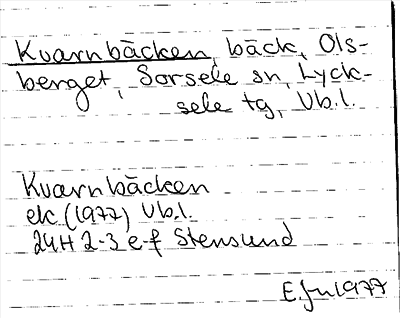 Kvarnbäcken, bäck, Ols-
berget, Sorsele sn, Lyck-
sele tg, Vb.l.
Kvarnbäcken
ek (1977) Vb.l.
24H 2-3 e-f Stensund
1977